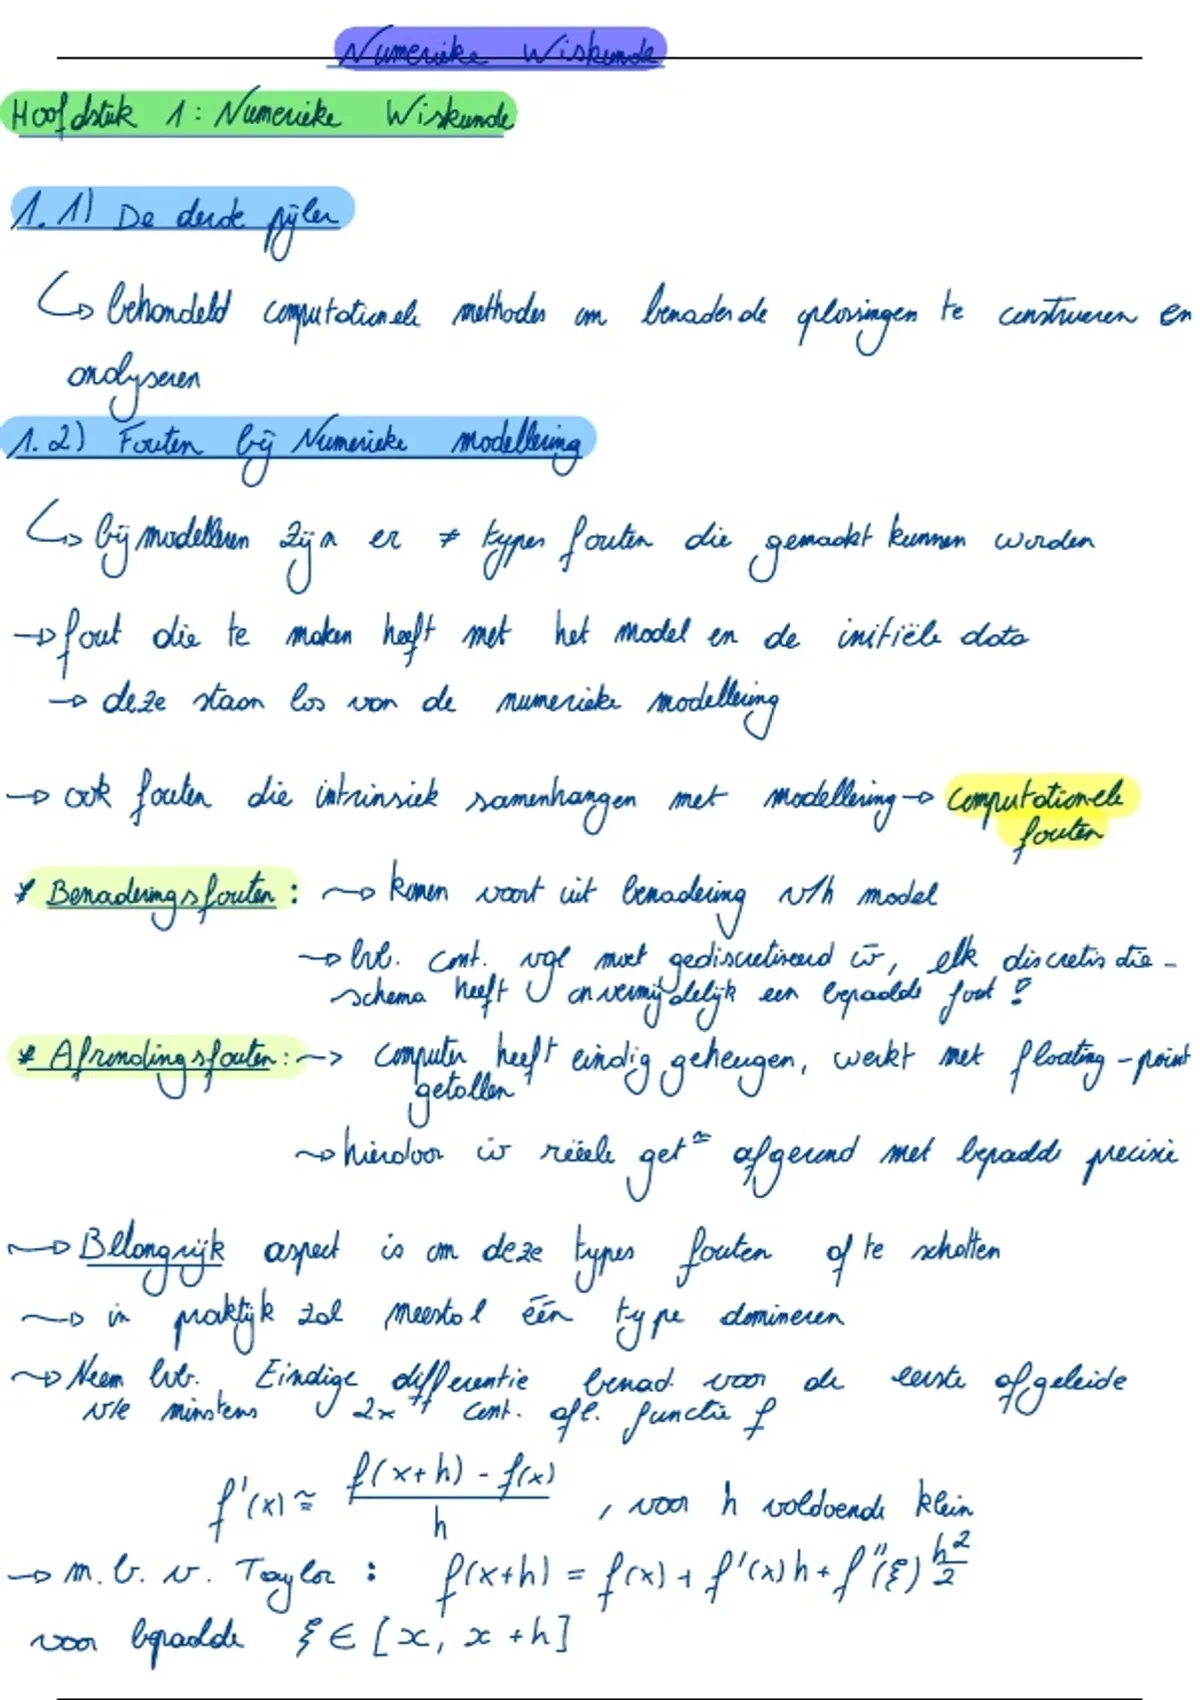 Numerieke Wiskunde
Hoofdstuk 1: Numerieke Wiskunde
1.1) De derde pijler
↳ behandeld computationele methodes om benaderde oplossingen te construeren en
analyseren
1.2) Fouten bij Numerieke modellering
↳ bij modelleren zijn er ≠ types fouten die gemaakt kunnen worden
→ fout die te maken heeft met het model en de initiële data
→ deze staan los van de numerieke modellering
→ ook fouten die intrinsiek samenhangen met modellering → Computationele
fouten
* Benaderingsfouten: → komen voort uit benadering v/h model
→ bvb. cont. vgl moet gediscretiseerd w̄, elk discretisatie-
schema heeft onvermijdelijk een bepaalde fout!
* Afrondingsfouten: → computer heeft eindig geheugen, werkt met floating-point
getallen
→ hierdoor w̄ reëele get≈ afgerond met bepaalde precisie
→ Belangrijk aspect is om deze types fouten af te schatten
→ in praktijk zal meestal één type domineren
→ Neem bvb. Eindige differentie benad. voor de eerste afgeleide
v/e minstens 2x cont. afl. functie f
f'(x) ≈ f(x+h) - f(x) / h , voor h voldoende klein
→ m.b.v. Taylor : f(x+h) = f(x) + f'(x)h + f''(ξ) h²/2
voor bepaalde ξ ∈ [x, x+h]